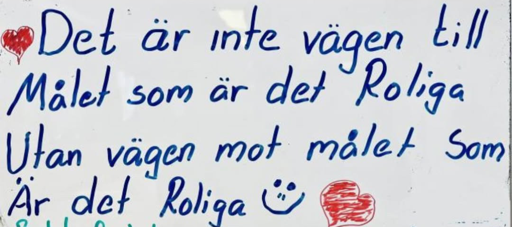 Det är inte vägen till
Målet som är det Roliga
Utan vägen mot målet Som
Är det Roliga